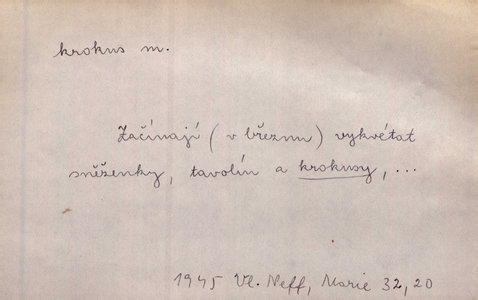 krokus m.
Začínají (v březnu) vykvétat
sněženky, tavolín a krokusy, ...
1945 Vl. Neff, Marie 32, 20